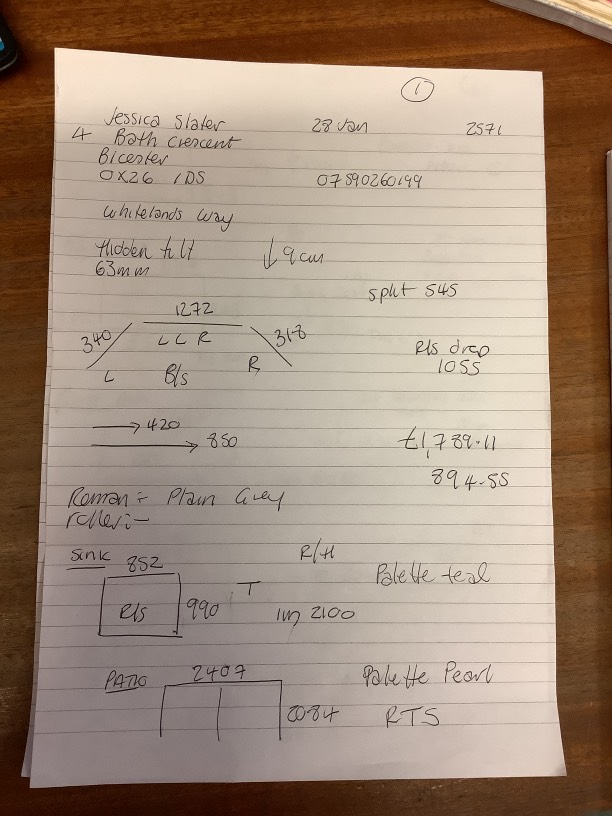 1
Jessica Slater 28 Jan 2571
4 Bath Crescent
Bicester
OX26 1DS 07890260199
Whitelands Way
Hidden tilt ↓ 9cm
63mm
split 545
1272
340 L C R 318
L B/s R
R/s drop
1055
→ 420
→ 850
£1,789.11
894.55
Roman :- Plain Grey
roller :-
Sink 852 R/H
Palette teal
R/s 990 T 1m 2100
PATIO 2407 Palette Pearl
2084 RTS